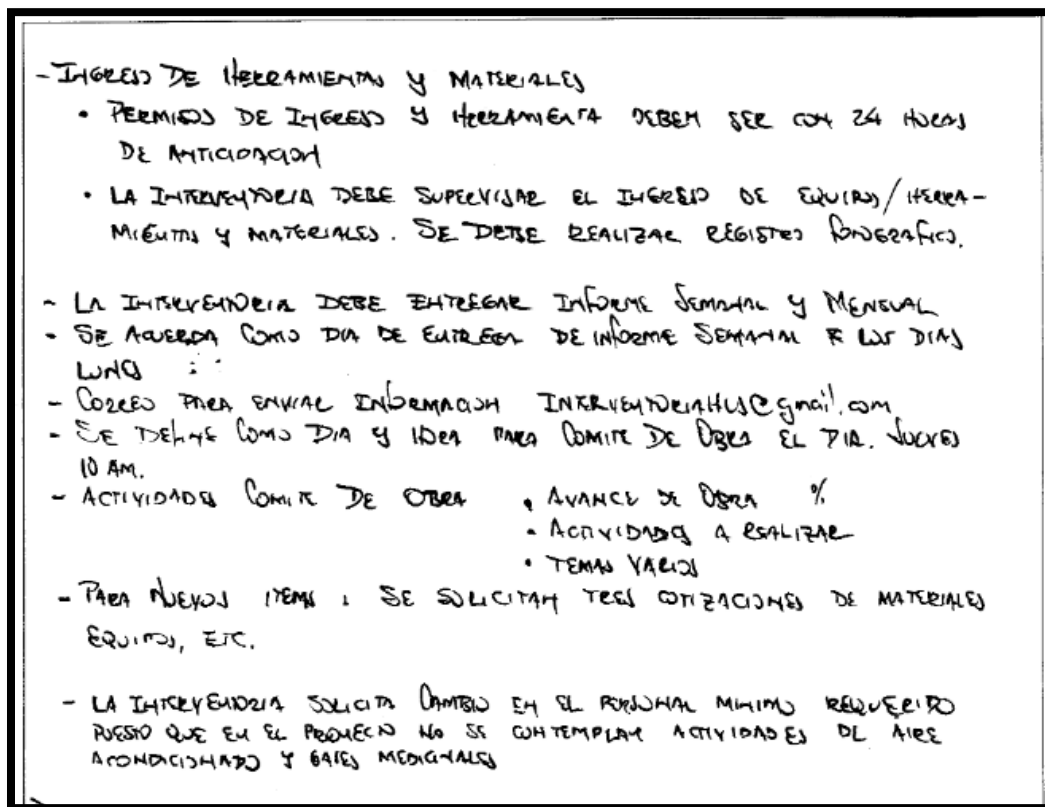 - INGRESO DE HERRAMIENTAS Y MATERIALES
• PERMISOS DE INGRESO Y HERRAMIENTA DEBEN SER CON 24 HORAS
DE ANTICIPACION
• LA INTERVENTORIA DEBE SUPERVISAR EL INGRESO DE EQUIPOS/HERRA-
MIENTAS Y MATERIALES. SE DEBE REALIZAR REGISTRO FOTOGRAFICO.
- LA INTERVENTORIA DEBE ENTREGAR INFORME SEMANAL Y MENSUAL
- SE ACUERDA COMO DIA DE ENTREGA DE INFORME SEMANAL LOS DIAS
LUNES
- CORREO PARA ENVIAR INFORMACION INTERVENTORIAHUS@gmail.com
- SE DEFINE COMO DIA Y HORA PARA COMITE DE OBRA EL DIA. JUEVES
10 AM.
- ACTIVIDADES COMITE DE OBRA • AVANCE DE OBRA %
• ACTIVIDADES A REALIZAR
• TEMAS VARIOS
- PARA NUEVOS ITEMS : SE SOLICITAN TRES COTIZACIONES DE MATERIALES
EQUIPOS, ETC.
- LA INTERVENTORIA SOLICITA CAMBIO EN EL PERSONAL MINIMO REQUERIDO
PUESTO QUE EN EL PROYECTO NO SE CONTEMPLAN ACTIVIDADES DE AIRE
ACONDICIONADO Y GASES MEDICINALES